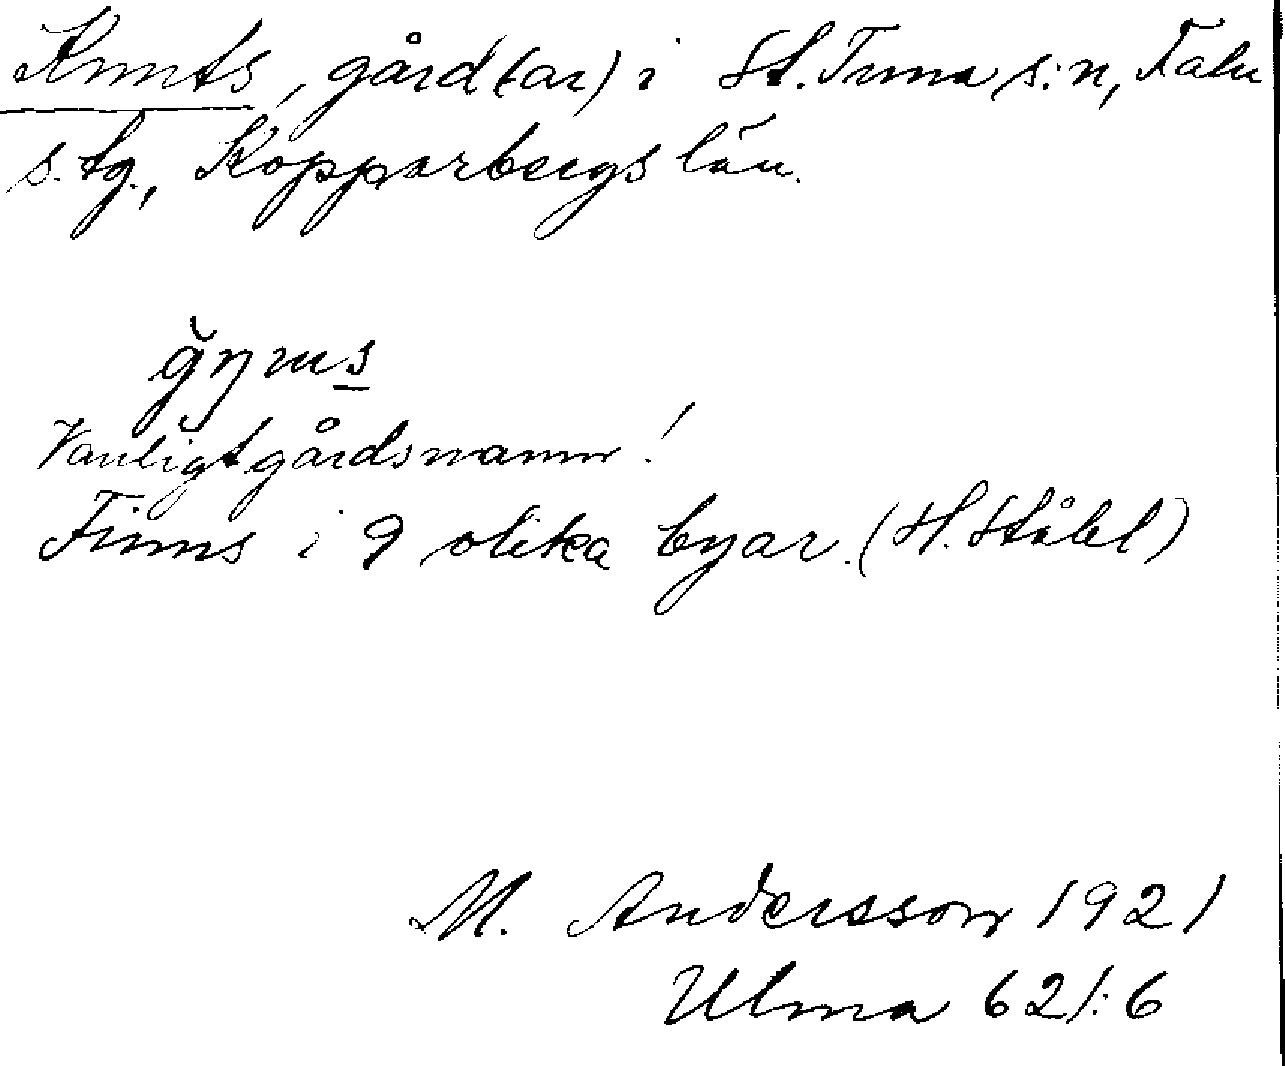 Knuts, gård(ar) i St. Tuna s:n, Falu
s. tg., Kopparbergs län.
Vanligt gårdsnamn!
Finns i 9 olika byar. (H. Ståhl)
M. Andersson 1921
Ulma 621:6